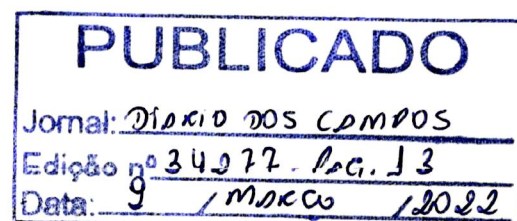 PUBLICADO
Jornal: DIARIO DOS CAMPOS
Edição nº 34277. PAG. 13
Data: 9 / MARCO / 2022